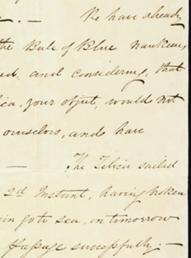 We have already
the Bale of Blue Nankeens
and considering, that
your object, would not
ourselves, and have
The Felicia sailed
2d Instant, having
go to sea, in tomorrow
passage successfully. —